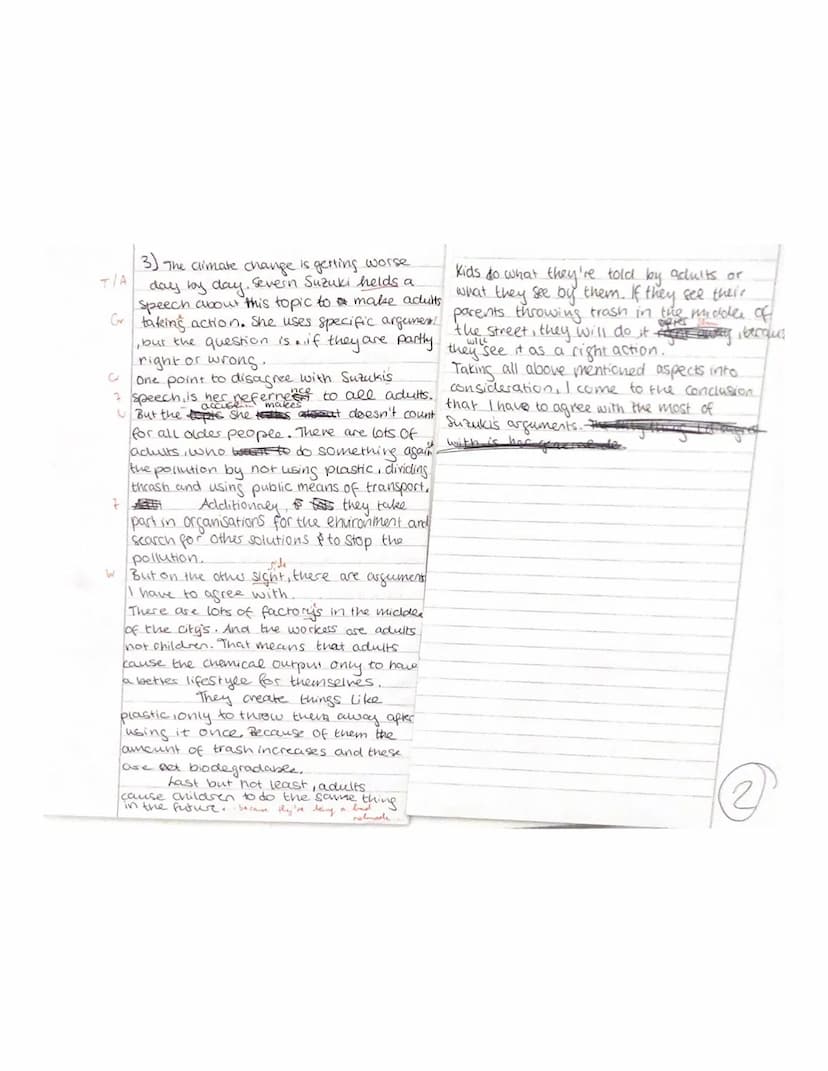 3) The climate change is getting worse
T/A day by day. Severn Suzuki helds a
speech about this topic to make adults
Gr taking action. She uses specific argument
, but the question is, if they are partly
right or wrong.
G One point to disagree with Suzukis
speech, is her refernence to all adults.
accuse makes
But the she doesn't count
for all older people. There are lots of
adults, who do something again
the pollution by not using plastic, dividing
thrash and using public means of transport.
Additionaly, they take
part in organisations for the environment and
search for other solutions to stop the
pollution.
side
W But on the other sight, there are argument
I have to agree with.
There are lots of factory's in the middle
of the city's. And the workers are adults
not children. That means that adults
cause the chemical output only to have
a better lifestyle for themselves.
They create things like
plastic, only to throw them away after
using it once. Because of them the
amount of trash increases and these
are not biodegradable.
Last but not least, adults
cause children to do the same thing
in the future. because they're being a bad
Kids do what they're told by adults or
what they see by them. If they see their
parents throwing trash in the middle of
the street, they will do it , becaus
will
they see it as a right action.
Taking all above mentioned aspects into
consideration, I come to the conclusion
that I have to agree with the most of
Suzukis arguments.
2